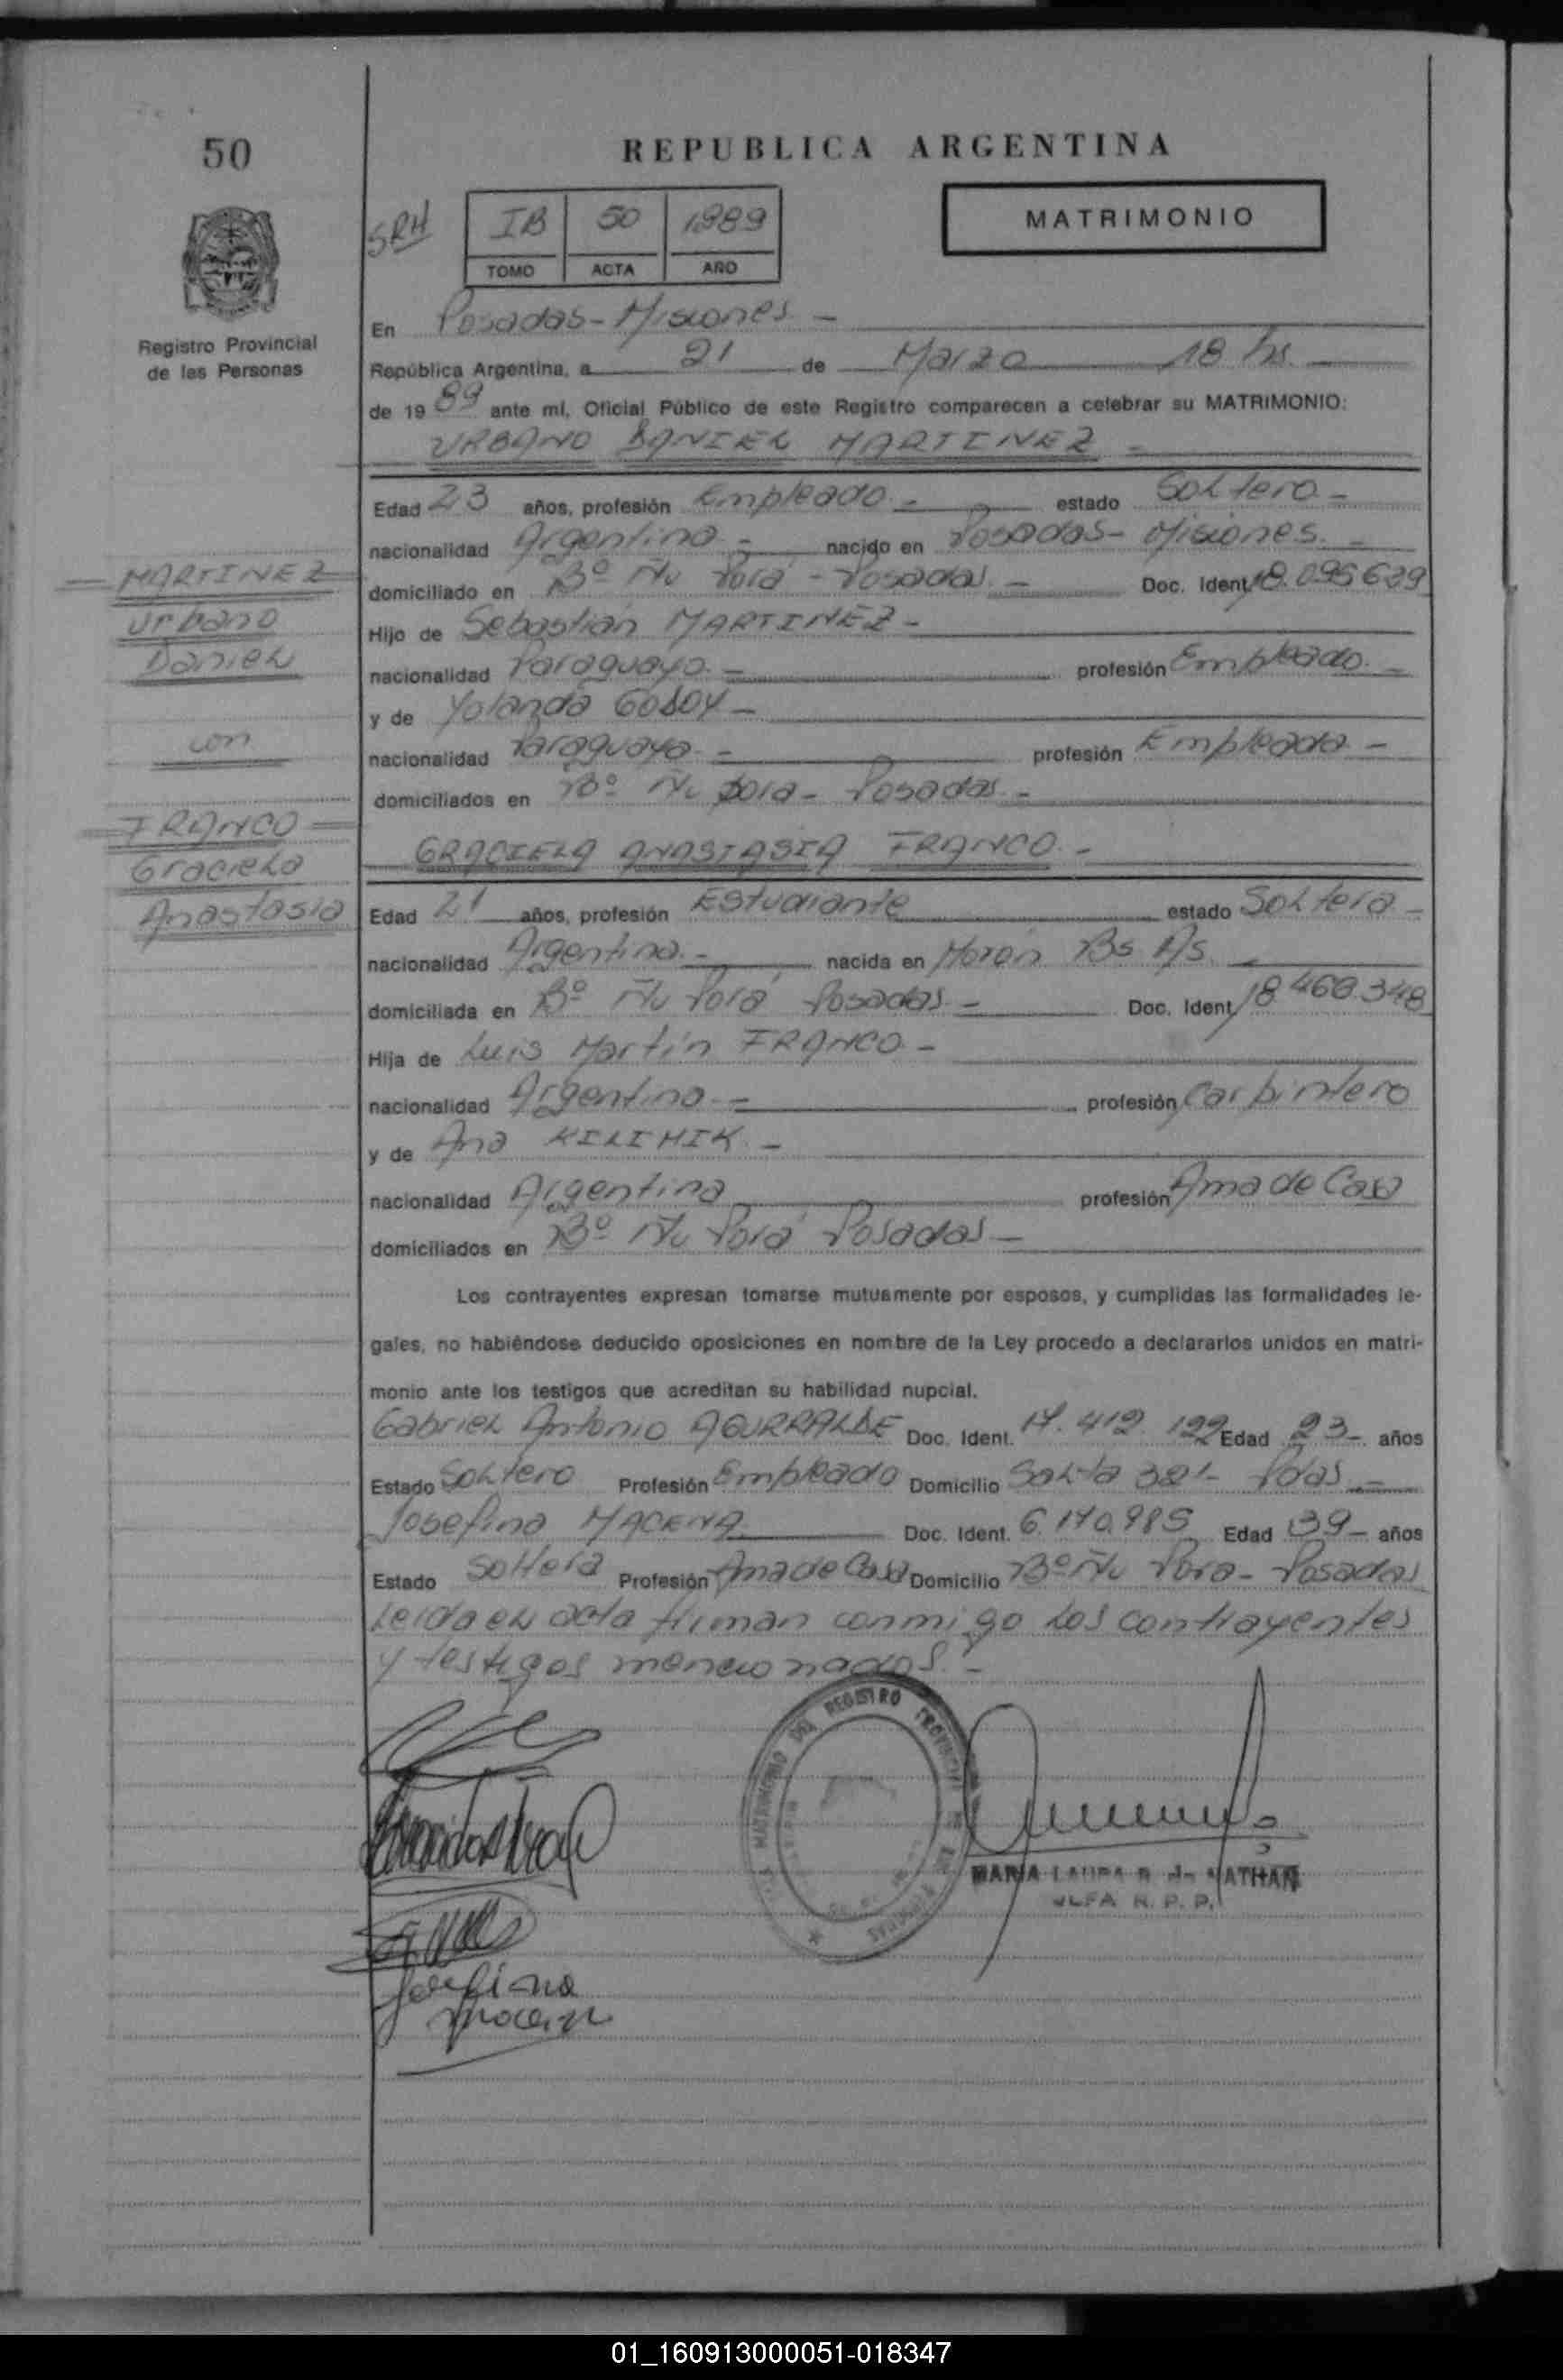 50
REPUBLICA ARGENTINA
SRH
IB 50 1989
TOMO ACTA AÑO
MATRIMONIO
Registro Provincial
de las Personas
En Posadas - Misiones -
República Argentina, a 21 de Marzo 18 hs.
de 1989 ante mí, Oficial Público de este Registro comparecen a celebrar su MATRIMONIO:
URBANO DANIEL MARTINEZ -
Edad 23 años, profesión Empleado.- estado Soltero -
nacionalidad Argentino - nacido en Posadas - Misiones. -
domiciliado en Bº Ñu Porá - Posadas. - Doc. Ident. 18.095639
Hijo de Sebastián MARTINEZ -
nacionalidad Paraguayo. - profesión Empleado. -
y de Yolanda GODOY -
nacionalidad Paraguaya - profesión Empleada -
domiciliados en Bº Ñu Pora - Posadas -
MARTINEZ
Urbano
Daniel
con
FRANCO
Graciela
Anastasia
GRACIELA ANASTASIA FRANCO. -
Edad 21 años, profesión Estudiante estado Soltera -
nacionalidad Argentina. - nacida en Morón Bs As.
domiciliada en Bº Ñu Porá Posadas - Doc. Ident. 18.468.348
Hija de Luis Martín FRANCO -
nacionalidad Argentino - profesión Carpintero
y de Ana KILIMIK. -
nacionalidad Argentina profesión Ama de Casa
domiciliados en Bº Ñu Porá Posadas -
Los contrayentes expresan tomarse mutuamente por esposos, y cumplidas las formalidades le-
gales, no habiéndose deducido oposiciones en nombre de la Ley procedo a declararlos unidos en matri-
monio ante los testigos que acreditan su habilidad nupcial.
Gabriel Antonio AGURRALDE Doc. Ident. 17.412.122 Edad 23 - años
Estado Soltero Profesión Empleado Domicilio Salta 381 - Pdas -
Josefina MACENA Doc. Ident. 6.170.985 Edad 39 - años
Estado Soltera Profesión Ama de Casa Domicilio Bº Ñu Pora - Posadas
Leída el acta firman conmigo los contrayentes
y testigos mencionados. -
MATRIMONIO DEL REGISTRO PROVINCIAL DE LAS PERSONAS
MARIA LAURA R. de NATHAN
JEFA R. P. P.
Josefina
Macena
01_160913000051-018347